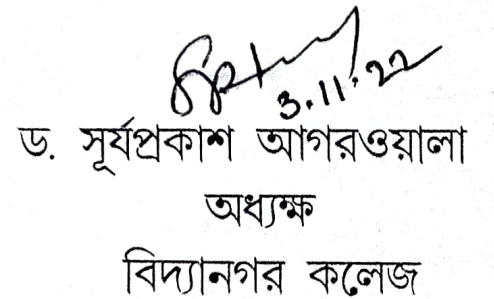 3.11.22
ড. সূর্যপ্রকাশ আগরওয়ালা
অধ্যক্ষ
বিদ্যানগর কলেজ